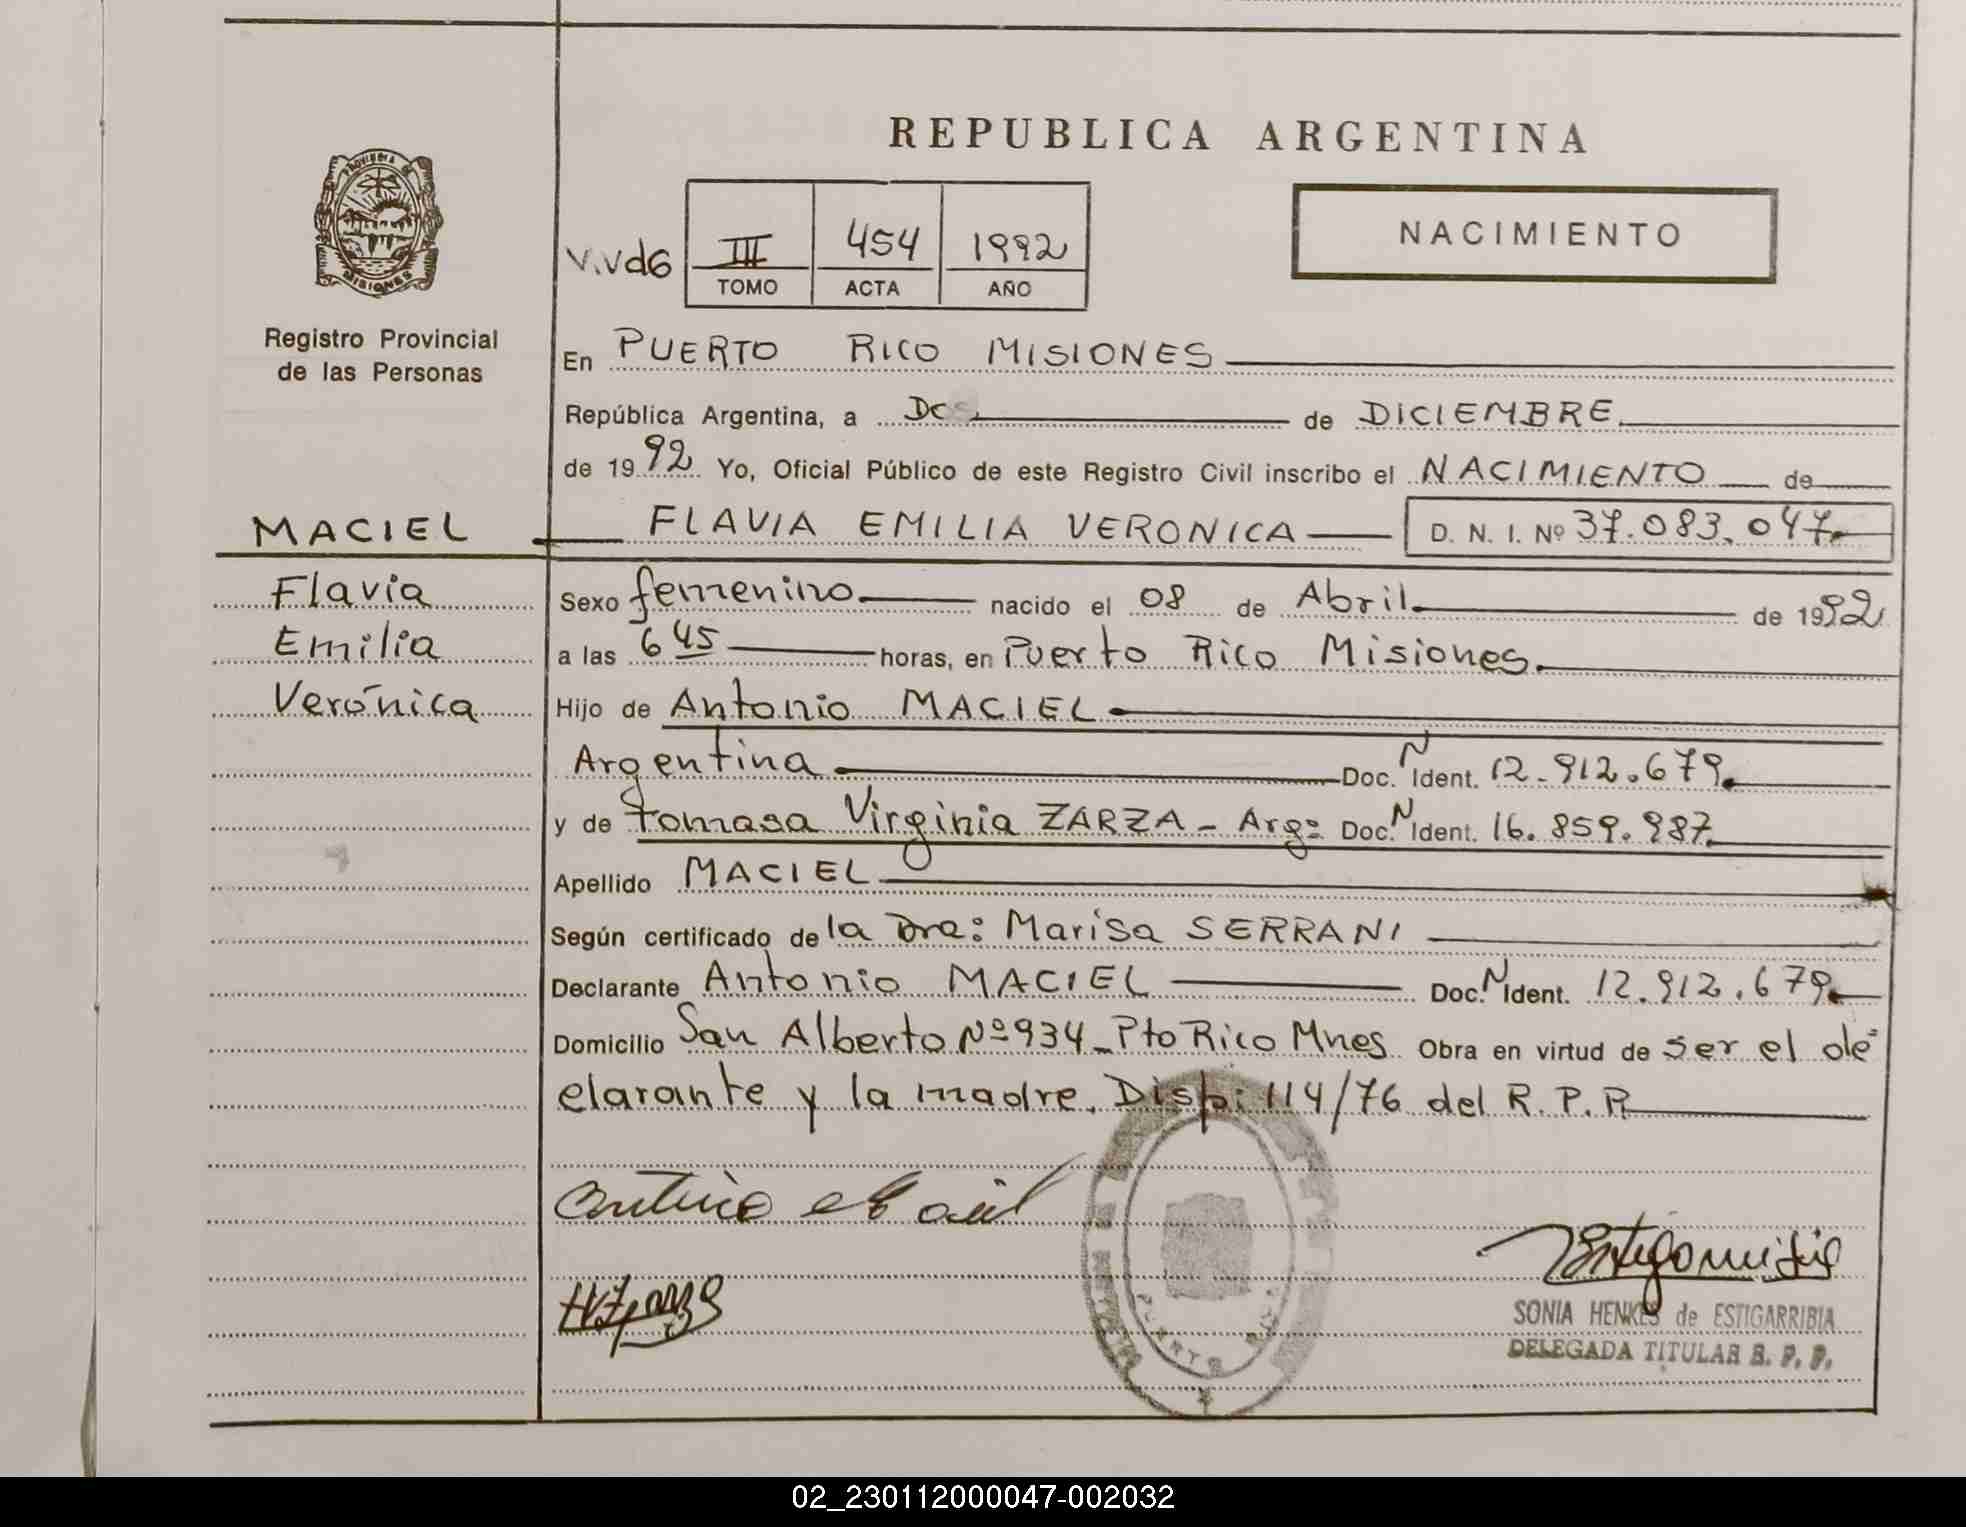 REPUBLICA ARGENTINA
PROVINCIA DE MISIONES
Registro Provincial
de las Personas
V.Vd6 III 454 1992
TOMO ACTA AÑO
NACIMIENTO
En PUERTO RICO MISIONES
República Argentina, a Dos de DICIEMBRE
de 1992 Yo, Oficial Público de este Registro Civil inscribo el NACIMIENTO de
MACIEL FLAVIA EMILIA VERONICA D. N. I. Nº 37.083.047
Flavia
Emilia
Verónica
Sexo femenino nacido el 08 de Abril de 1992
a las 6 45 horas, en Puerto Rico Misiones
Hijo de Antonio MACIEL
Argentina Doc. N Ident. 12.912.679
y de Tomasa Virginia ZARZA - Arg: Doc. N Ident. 16.859.987
Apellido MACIEL
Según certificado de la Dra: Marisa SERRANI
Declarante Antonio MACIEL Doc. N Ident. 12.912.679
Domicilio San Alberto Nº 934 - Pto Rico Mnes Obra en virtud de ser el de=
clarante y la madre. Disp: 114/76 del R.P.P.
PUERTO RICO
SONIA HENKES de ESTIGARRIBIA
DELEGADA TITULAR R. P. P.
02_230112000047-002032